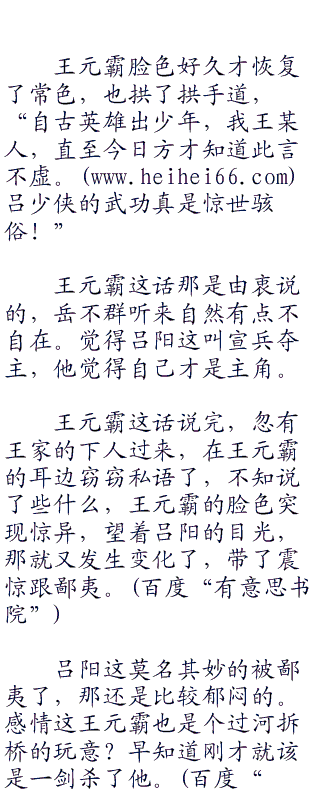 王元霸脸色好久才恢复
了常色，也拱了拱手道，
“自古英雄出少年，我王某
人，直至今日方才知道此言
不虚。(www.heihei66.com)
吕少侠的武功真是惊世骇
俗！”
王元霸这话那是由衷说
的，岳不群听来自然有点不
自在。觉得吕阳这叫宣兵夺
主，他觉得自己才是主角。
王元霸这话说完，忽有
王家的下人过来，在王元霸
的耳边窃窃私语了，不知说
了些什么，王元霸的脸色突
现惊异，望着吕阳的目光，
那就又发生变化了，带了震
惊跟鄙夷。(百度“有意思书
院”)
吕阳这莫名其妙的被鄙
夷了，那还是比较郁闷的。
感情这王元霸也是个过河拆
桥的玩意？早知道刚才就该
是一剑杀了他。(百度“